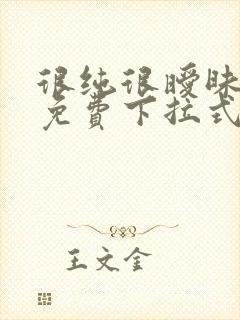 很纯很暧昧
免费下拉式
王文金